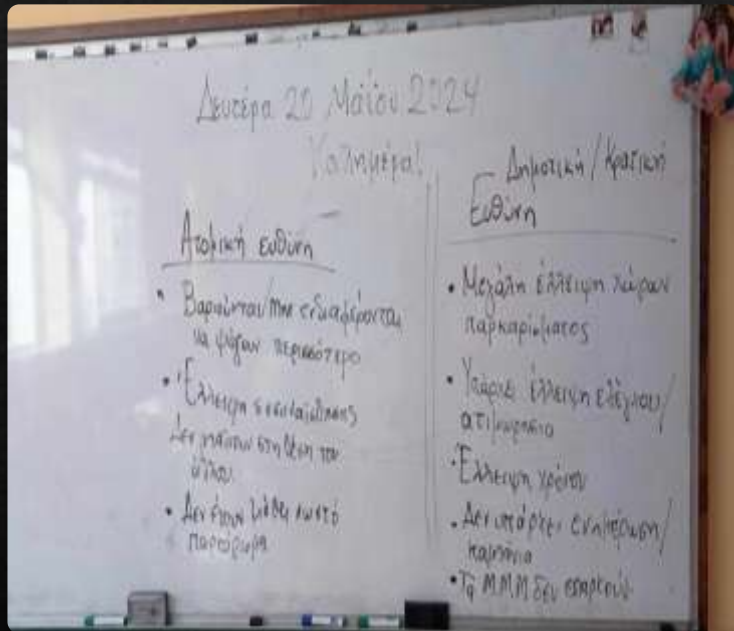 Δευτέρα 20 Μαΐου 2024
Καλημέρα!
Ατομική ευθύνη
• Βαριούνται/Δεν ενδιαφέρονται
να ψάξουν περισσότερο
• Έλλειψη ενσυναίσθησης
Δεν μπαίνουν στη θέση του
άλλου
• Δεν έχουν μάθει σωστό
παρκάρισμα
Δημοτική/Κρατική
Ευθύνη
• Μεγάλη έλλειψη χώρων
παρκαρίσματος
• Υπάρχει έλλειψη ελέγχου/
ατιμωρησία
• Έλλειψη χρόνου
• Δεν υπάρχει ενημέρωση/
καμπάνια
• Τα ΜΜΜ δεν επαρκούν